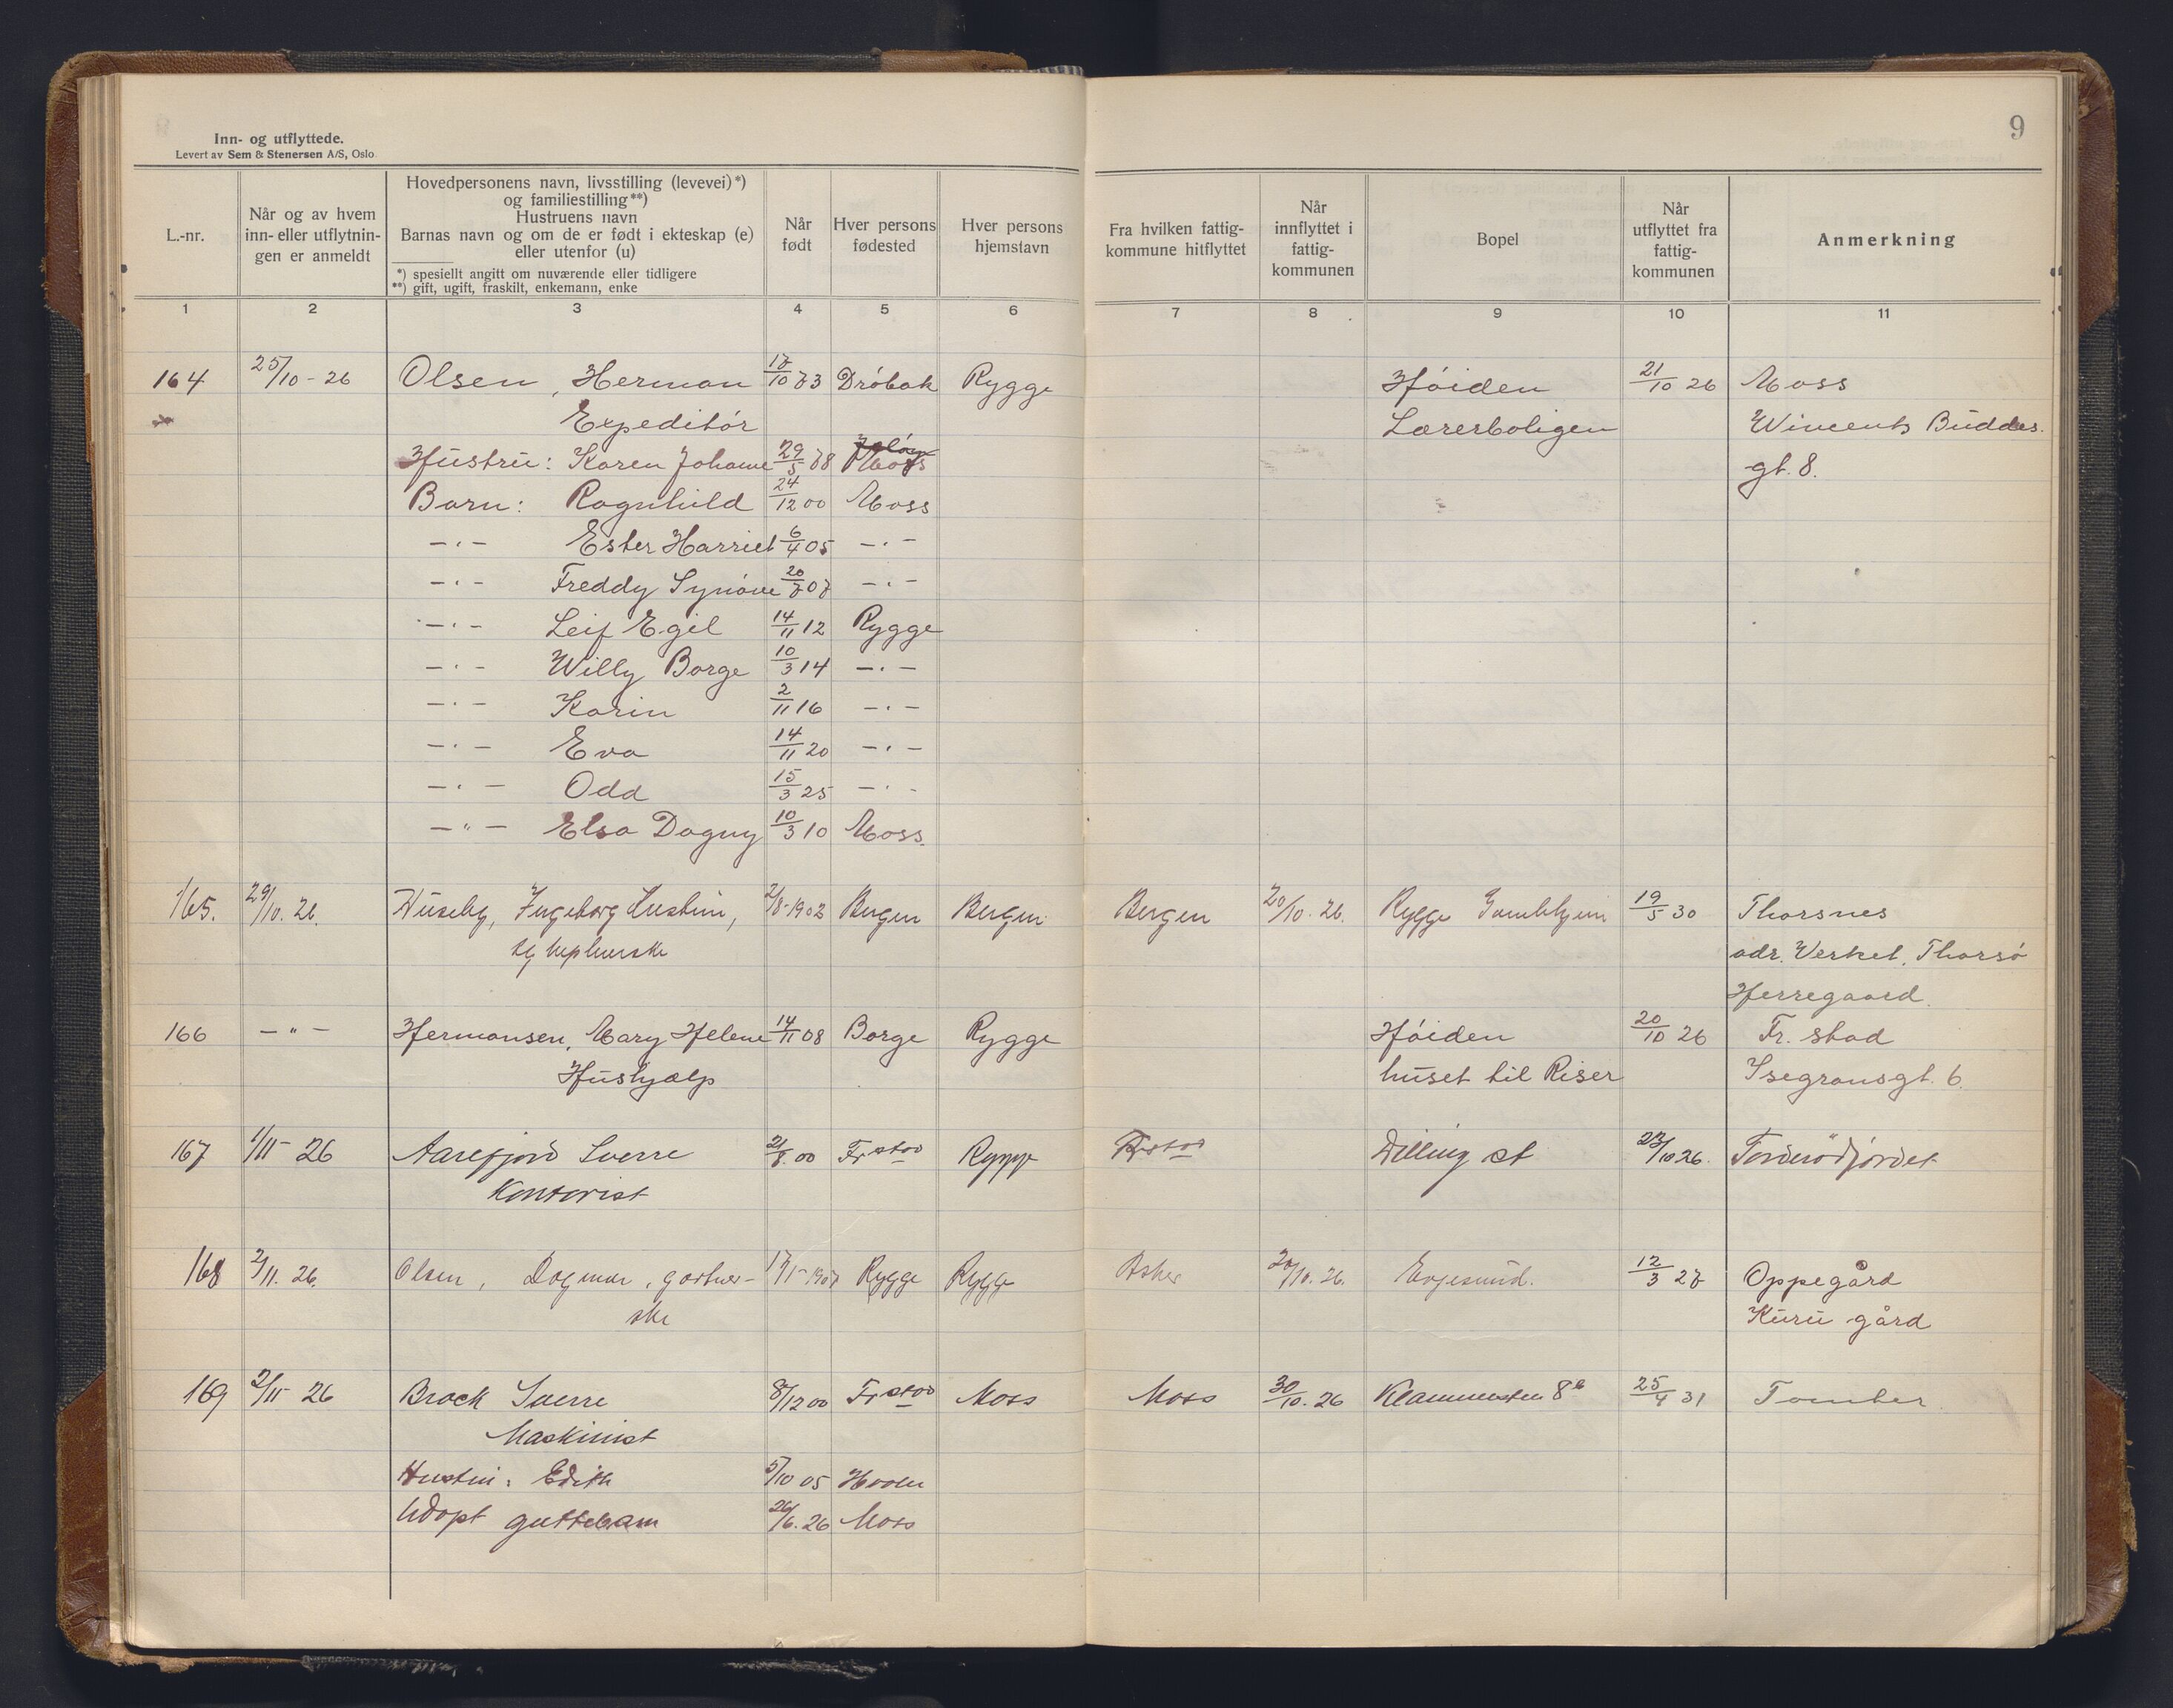 9
Inn- og utflyttede.
Levert av Sem & Stenersen A/S, Oslo
L.-nr.
Når og av hvem inn- eller utflytnin-gen er anmeldt
Hovedpersonens navn, livsstilling (levevei)*)
og familiestilling**)
Hustruens navn
Barnas navn og om de er født i ekteskap (e)
eller utenfor (u)
*) spesiellt angitt om nuværende eller tidligere
**) gift, ugift, fraskilt, enkemann, enke
Når født
Hver persons fødested
Hver persons hjemstavn
Fra hvilken fattig-kommune hitflyttet
Når innflyttet i fattig-kommunen
Bopel
Når utflyttet fra fattig-kommunen
Anmerkning
1 2 3 4 5 6 7 8 9 10 11
164 25/10-26 Olsen, Herman 17/10 73 Dröbak Rygge Höiden 21/10 26 Moss
Expeditör Lærerboligen Wincents Buddes.
Hustru: Karen Johanne 29/5 78 Moss gt. 8.
Barn: Ragnhild 24/12 00 Moss
-"- Ester Harriet 6/4 05 -"-
-"- Freddy Synöve 20/7 07 -"-
-"- Leif Egil 14/11 12 Rygge
-"- Willy Borge 10/3 14 -"-
-"- Karin 2/11 16 -"-
-"- Eva 14/11 20 -"-
-"- Odd 15/3 25 -"-
-"- Elsa Dagny 10/3 10 Moss.
165. 29/10. 26. Huseby, Ingeborg 2/8-1902 Bergen Bergen Bergen 20/10. 26. Rygge Gamlehjem 19/5 30 Thorsnes
adr. Verket, Thorsö
Herregaard.
166 -"- Hermansen, Mary Helene 14/11 08 Borge Rygge Höiden 20/10 26 Fr. stad
Hushjælp huset til Riser Isegransgt. 6.
167 1/11 26 Aarefjord Sverre 21/8. 00 Frstad Rygge Frstad Dilling st 23/10 26. Torderödjordet
Kontorist
168 2/11. 26. Olsen, Dagmar, gartner- 17/5-1907 Rygge Rygge Asker 20/10. 26. Evjesund. 12/3 27 Oppegård
ske Kuru gård
169 2/11 26 Brock Sverre 8/12 00 Frstad Moss Moss 30/10. 26 8b 25/4 31 Tomter
Maskinist
Hustru: Edith 5/10 05
Adopt guttebarn 26/6. 26 Moss